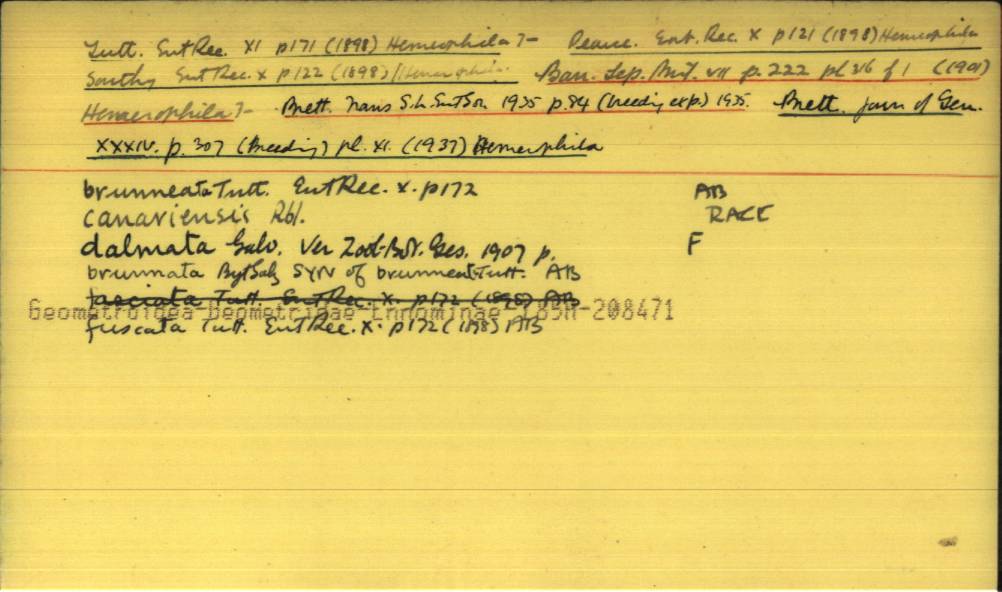 Tutt. Ent Rec. XI p171 (1898) Hemerophila ?- Pearce. Ent. Rec. X p121 (1898) Hemerophila
South, Ent Rec. X p122 (1898) Hemerophila. Barr. Lep. Brit. VII p. 222 pl 316 f 1 (1901)
Hemerophila ?- Brett. Trans S.L. Ent Soc 1935 p.84 (breeding exp.) 1935. Brett. Journ of Gen.
XXXIV. p. 307 (Breeding) pl. XI. (1937) Hemerophila
brunneata Tutt. Ent Rec. X. p172 AB
canariensis Rbl. RACE
dalmata Galv. Ver Zool-Bot. Ges. 1907 p. F
brunnata SYN of brunneata Tutt. AB
fasciata Tutt. Ent Rec. X. p172 (1898) AB
Geometroidea-Geometridae-Ennominae-
-208471
fuscata Tutt. Ent Rec. X. p172 (1898) AB